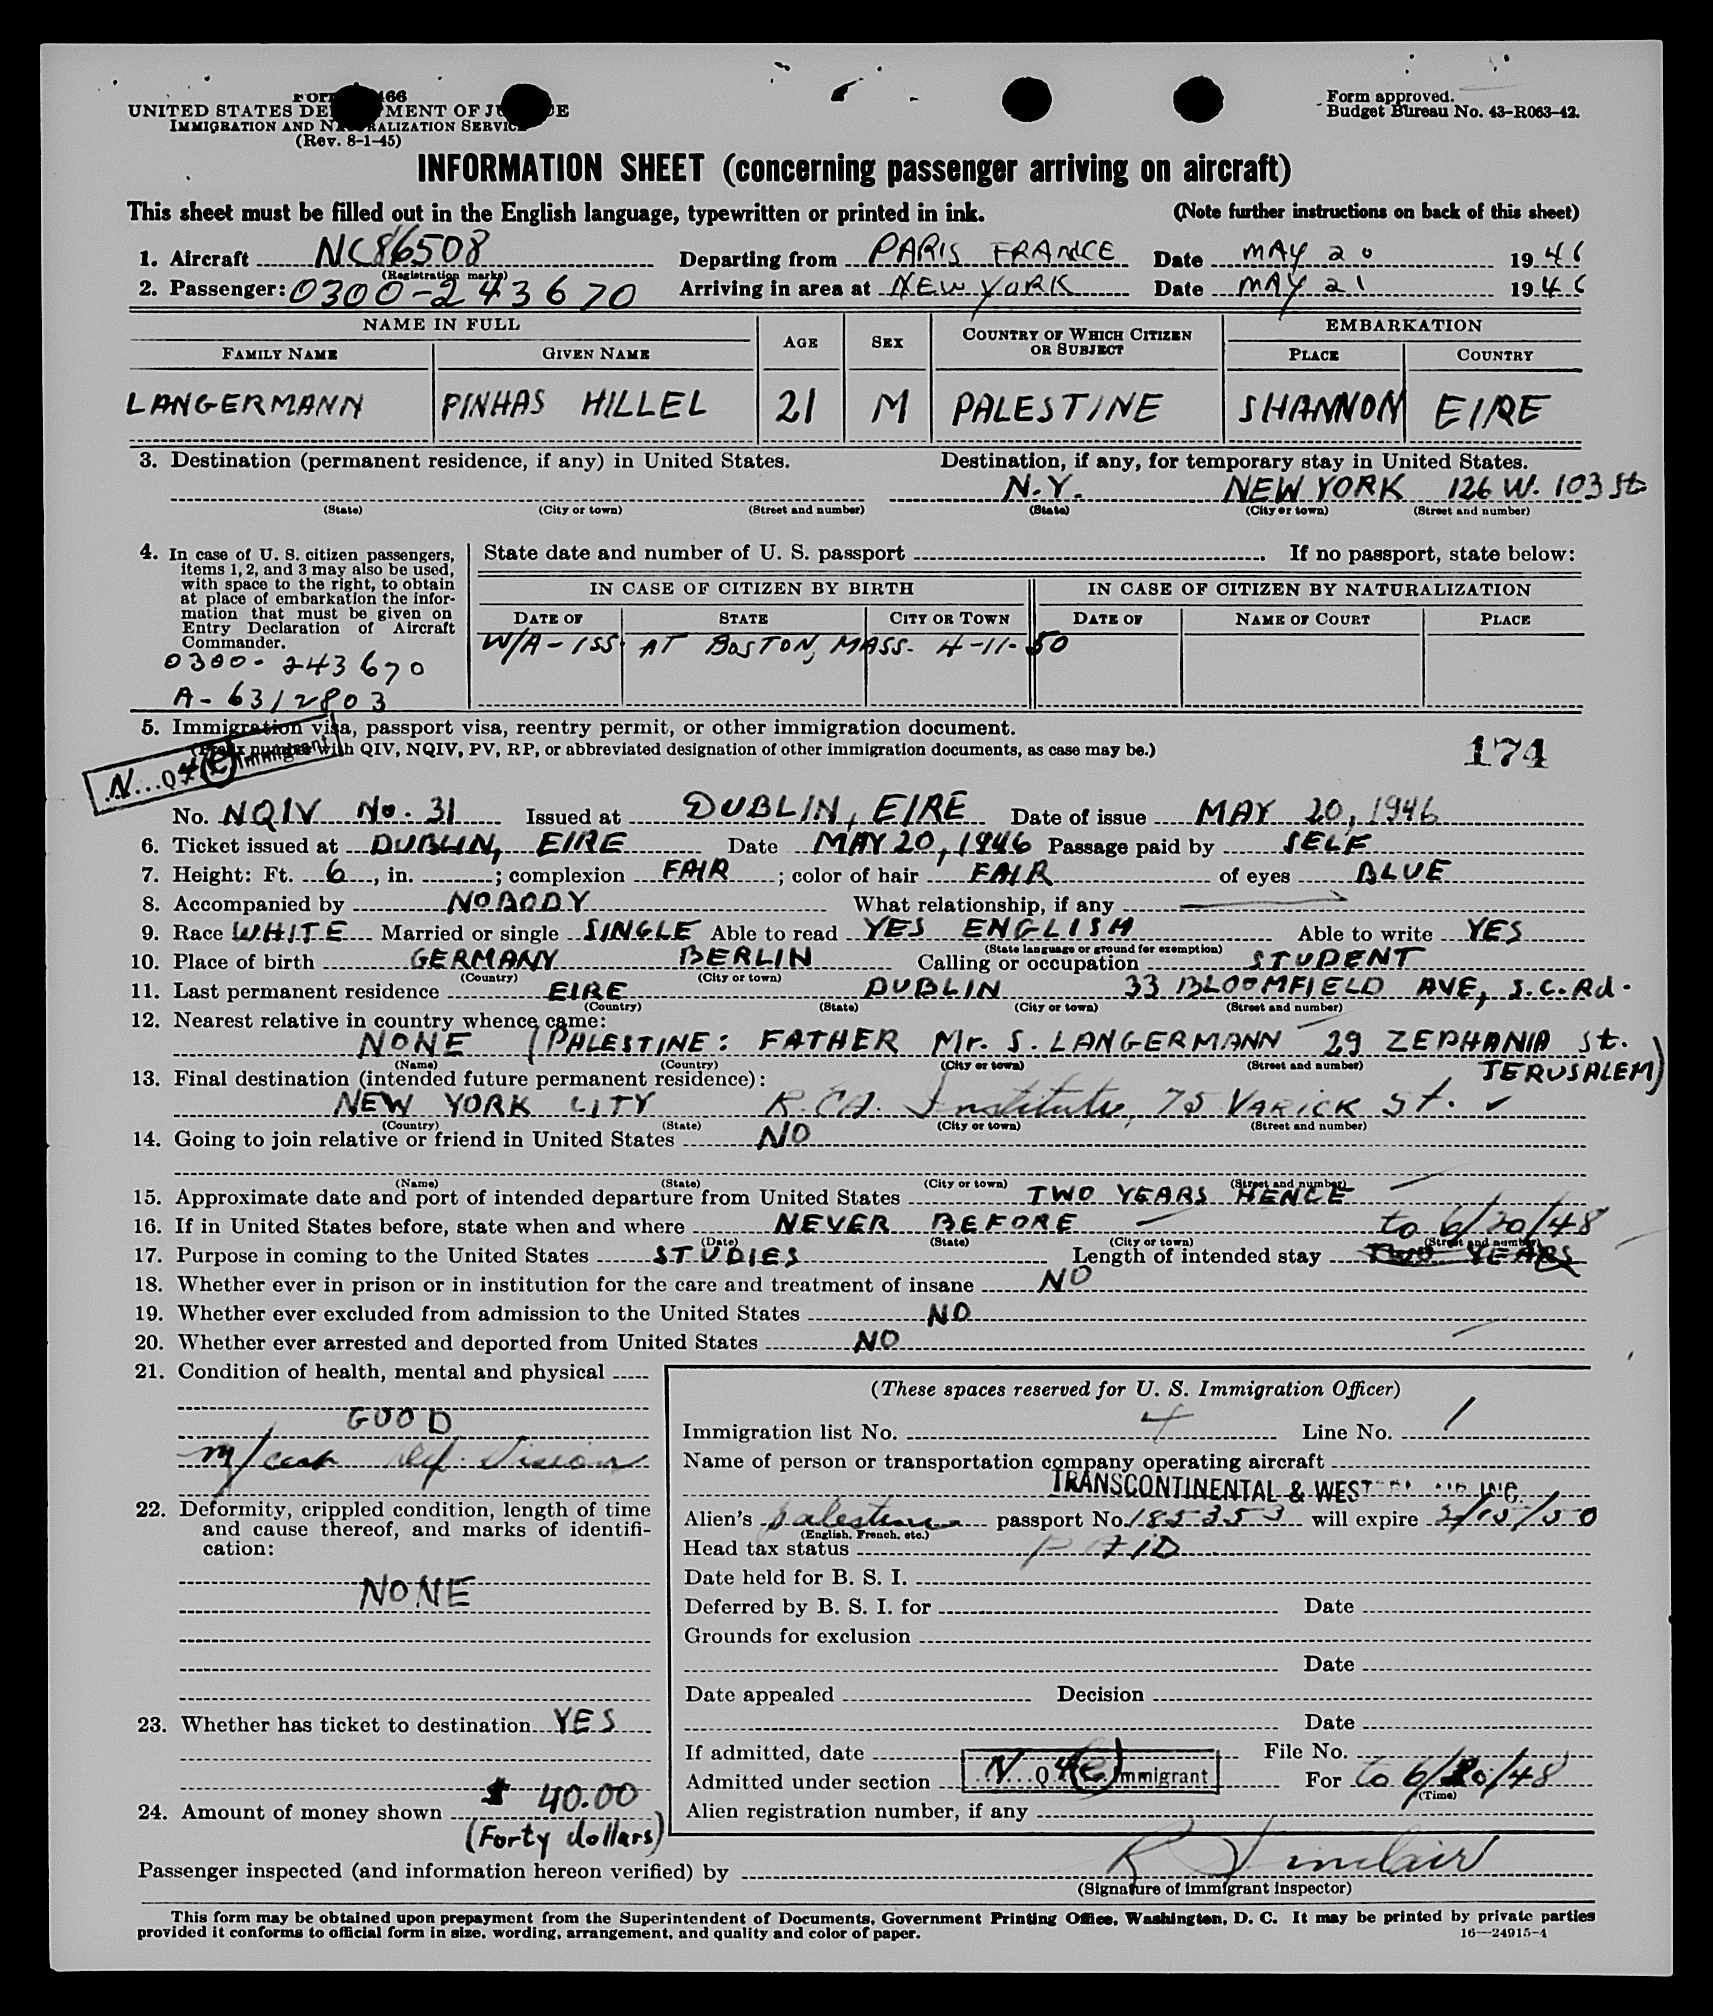 UNITED STATES DE MENT OF JU E
IMMIGRATION AND NATURALIZATION SERVICE
(Rev. 8-1-45)
Form approved.
Budget Bureau No. 43-R063-42.
INFORMATION SHEET (concerning passenger arriving on aircraft)
This sheet must be filled out in the English language, typewritten or printed in ink. (Note further instructions on back of this sheet)
1. Aircraft NC86508 Departing from PARIS FRANCE Date MAY 20 1946
(Registration marks)
2. Passenger: 0300-243670 Arriving in area at NEW YORK Date MAY 21 1946
NAME IN FULL AGE SEX COUNTRY OF WHICH CITIZEN OR SUBJECT EMBARKATION
FAMILY NAME GIVEN NAME PLACE COUNTRY
LANGERMANN PINHAS HILLEL 21 M PALESTINE SHANNON EIRE
3. Destination (permanent residence, if any) in United States. Destination, if any, for temporary stay in United States.
N.Y. NEW YORK 126 W. 103 St
(State) (City or town) (Street and number) (State) (City or town) (Street and number)
4. In case of U. S. citizen passengers, items 1, 2, and 3 may also be used, with space to the right, to obtain at place of embarkation the information that must be given on Entry Declaration of Aircraft Commander.
0300-243670
A-6312803
State date and number of U. S. passport . If no passport, state below:
IN CASE OF CITIZEN BY BIRTH IN CASE OF CITIZEN BY NATURALIZATION
DATE OF STATE CITY OR TOWN DATE OF NAME OF COURT PLACE
W/A-ISS. AT BOSTON, MASS. 4-11-50
5. Immigration visa, passport visa, reentry permit, or other immigration document.
(Prefix number with QIV, NQIV, PV, RP, or abbreviated designation of other immigration documents, as case may be.)
174
No. NQIV No. 31 Issued at DUBLIN, EIRE Date of issue MAY 20, 1946
6. Ticket issued at DUBLIN, EIRE Date MAY 20, 1946 Passage paid by SELF
7. Height: Ft. 6, in. ; complexion FAIR ; color of hair FAIR of eyes BLUE
8. Accompanied by NOBODY What relationship, if any
9. Race WHITE Married or single SINGLE Able to read YES ENGLISH Able to write YES
(State language or ground for exemption)
10. Place of birth GERMANY BERLIN Calling or occupation STUDENT
(Country) (City or town)
11. Last permanent residence EIRE DUBLIN 33 BLOOMFIELD AVE, S.C.Rd.
(Country) (State) (City or town) (Street and number)
12. Nearest relative in country whence came:
NONE (PALESTINE: FATHER Mr. S. LANGERMANN 29 ZEPHANIA St. JERUSALEM)
(Name) (Country) (City or town) (Street and number)
13. Final destination (intended future permanent residence):
NEW YORK CITY R.C.A. Institute, 75 VARICK St.
(Country) (State) (City or town) (Street and number)
14. Going to join relative or friend in United States NO
(Name) (State) (City or town) (Street and number)
15. Approximate date and port of intended departure from United States TWO YEARS HENCE
16. If in United States before, state when and where NEVER BEFORE
(Date) (State) (City or town) (Street and number)
to 6/20/48
17. Purpose in coming to the United States STUDIES Length of intended stay TWO YEARS
18. Whether ever in prison or in institution for the care and treatment of insane NO
19. Whether ever excluded from admission to the United States NO
20. Whether ever arrested and deported from United States NO
21. Condition of health, mental and physical
GOOD
m/cert def. Vision
22. Deformity, crippled condition, length of time and cause thereof, and marks of identification:
NONE
23. Whether has ticket to destination YES
24. Amount of money shown $ 40.00
(Forty dollars)
(These spaces reserved for U. S. Immigration Officer)
Immigration list No. 4 Line No. 1
Name of person or transportation company operating aircraft
TRANSCONTINENTAL & WEST
Alien's Palestine passport No. 185353 will expire 3/15/50
(English, French, etc.)
Head tax status PAID
Date held for B. S. I.
Deferred by B. S. I. for Date
Grounds for exclusion
Date
Date appealed Decision
Date
If admitted, date File No.
Admitted under section mmigrant For to 6/20/48
(Time)
Alien registration number, if any
Passenger inspected (and information hereon verified) by R Sinclair
(Signature of immigrant inspector)
This form may be obtained upon prepayment from the Superintendent of Documents, Government Printing Office, Washington, D. C. It may be printed by private parties
provided it conforms to official form in size, wording, arrangement, and quality and color of paper.
16—24915-4